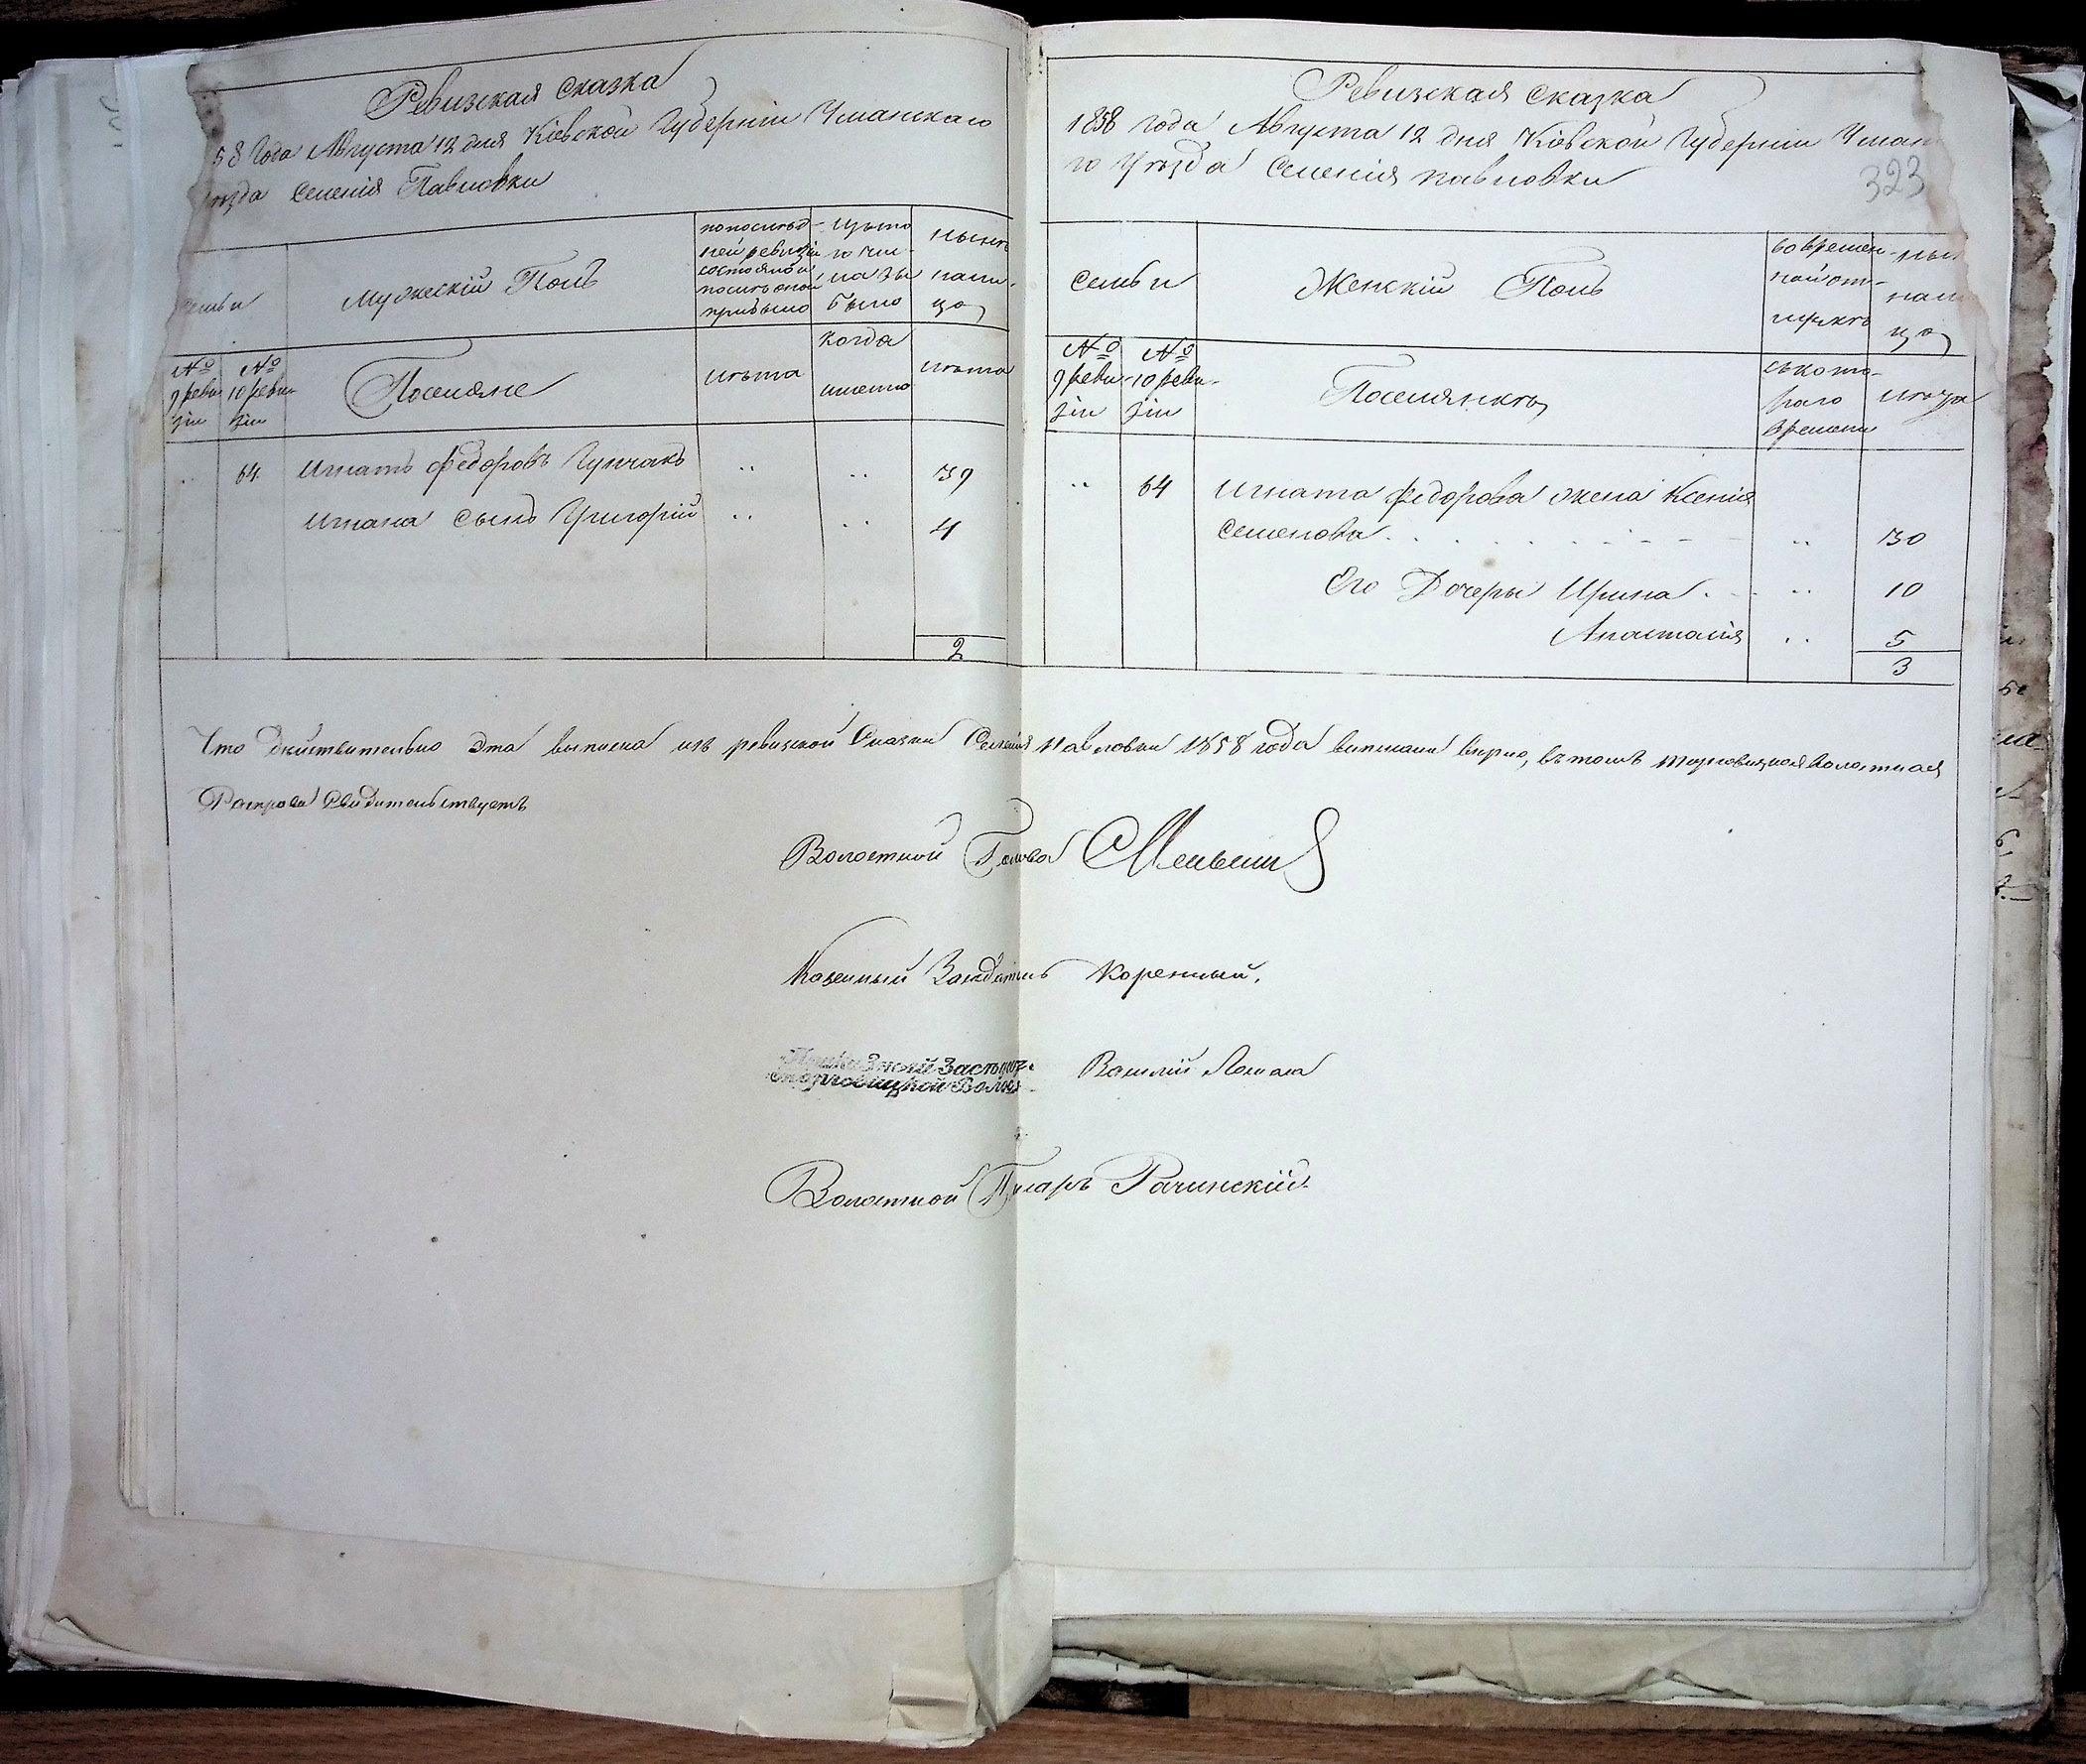 Ревизская Сказка
58 Года Августа 12 дня Кіевской Губерніи Уманскаго
уѣзда Селенія Павловки
Семьи
Мужескій Полъ
по послѣд-
ней ревизіи
состояло и
послѣ оной
прибыло
Изъ то
го чи-
сла вы
было
Нынѣ
нали-
цо
№ 9 реви
зіи
№ 10 реви
зіи
Поселяне
Лѣта
когда
именно
Лѣта
.. 64. Игнатъ Федоровъ Гупчакъ .. .. 39
Игната Сынъ Григорій .. .. 4
2
Ревизская Сказка
1858 года Августа 12 дня Кіевской Губерніи Уман
го Уѣзда Селенія Павловки
323
Семьи
Женскій Полъ
во времен-
ной от-
лучкѣ
ны
нали
цо
№ 9 реви-
зіи
№ 10 реви-
зіи
Поселянкѣ
съ кото-
раго
времени
Лѣта
.. 64 Игната Федорова жена Ксенія
Семенова .. 30
Его Дочеры Ирина .. 10
Анастасія .. 5
3
Что действительно эта выписка изъ ревизской Сказки Селенія Павловки 1858 года выписана вѣрно, въ томъ Торговицкая Волостная
Росправа Свидительствуетъ
Волостной Голова
Казенный Заедатель Коренный.
Приказной Заст
Торговицкой Волос
Василій
Волостной Писарь Рачинскій